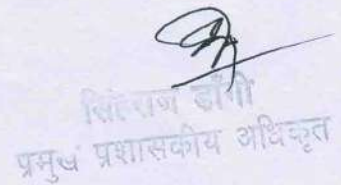 सिहराज डाँगी
प्रमुख प्रशासकीय अधिकृत